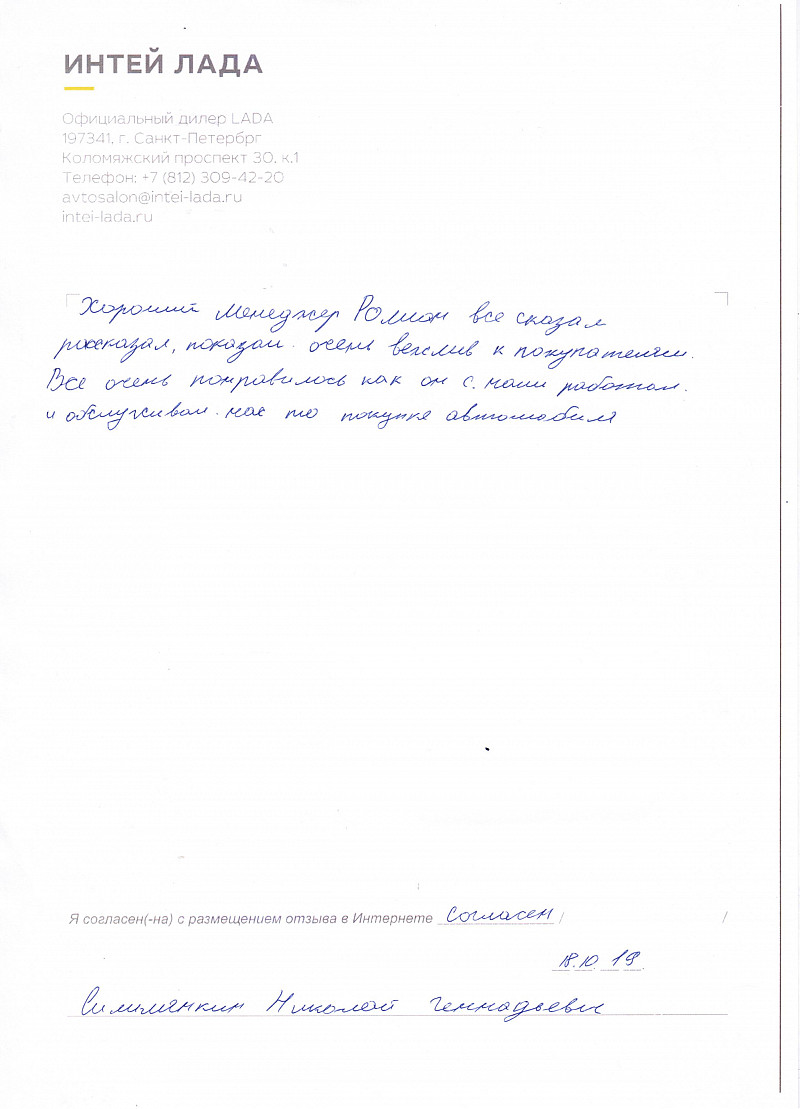 ИНТЕЙ ЛАДА
Официальный дилер LADA
197341, г. Санкт-Петербрг
Коломяжский проспект 30, к.1
Телефон: +7 (812) 309-42-20
avtosalon@intei-lada.ru
intei-lada.ru
Хороший менеджер все сказал
рассказал, показал. очень вежлив к покупателям.
Все очень понравилось как он с нами работал.
и обслуживал нас по покупке автомобиля
Я согласен(-на) с размещением отзыва в Интернете Согласен / /
18.10. 19
Николай Геннадьевич